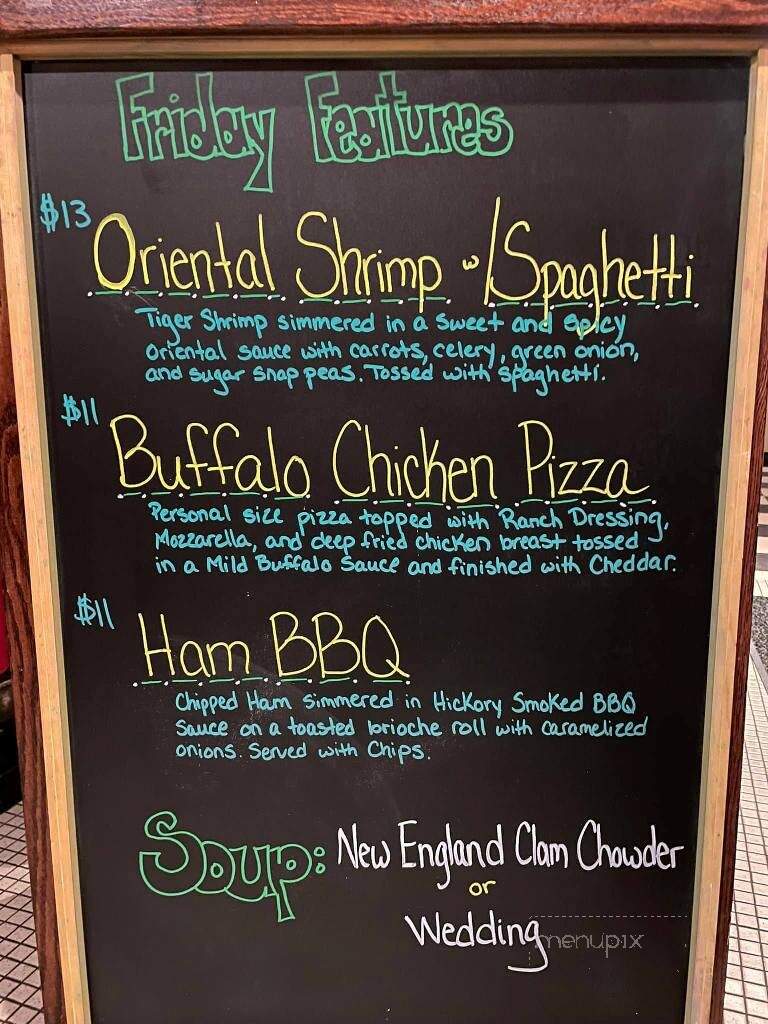 Friday Features
$13
Oriental Shrimp w/ Spaghetti
Tiger Shrimp simmered in a sweet and spicy
oriental sauce with carrots, celery, green onion,
and sugar snap peas. Tossed with spaghetti.
$11
Buffalo Chicken Pizza
Personal size pizza topped with Ranch Dressing,
Mozzarella, and deep fried chicken breast tossed
in a Mild Buffalo Sauce and finished with Cheddar.
$11
Ham BBQ
Chipped Ham simmered in Hickory Smoked BBQ
Sauce on a toasted brioche roll with caramelized
onions. Served with Chips.
Soup: New England Clam Chowder
or
Wedding
menupix